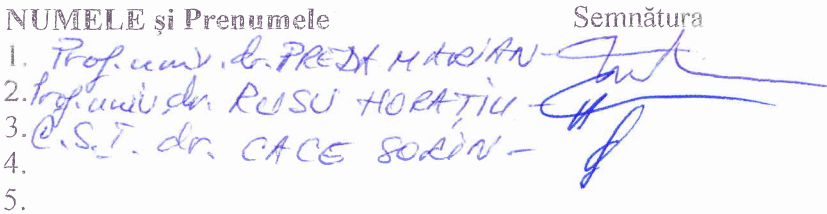 NUMELE și Prenumele Semnătura
1. Prof. univ. dr. PREDA MARIAN -
2. Prof. univ. dr. RUSU HORAȚIU -
3. C.S.I. dr. CACE SORIN -
4.
5.